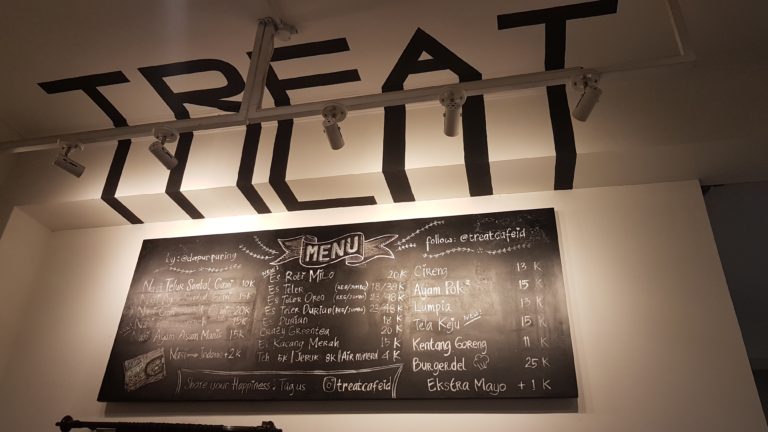 TREAT
MENU
by: @dapurpuring
follow: @treatcafeid
Nasi Telur Sambal Cumi 10K
20K
15K
Nasi Ayam Asam Manis 15K
Nasi → Indomie +2K
NEW!
Es Roti MILO 20K
Es Teler (REG/JUMBO) 18/38K
Es Teler Oreo (REG/JUMBO) 23/48K
Es Teler Durian (REG/JUMBO) 23/48K
Es Durian 18 K
Crazy Greentea 20 K
Es Kacang Merah 15 K
Teh 5K | Jeruk 8K | Air mineral 4 K
Cireng 13 K
Ayam Pok² 15 K
Lumpia 13 K
Tela Keju NEW! 15 K
Kentang Goreng 11 K
Burger.del 25 K
Ekstra Mayo +1 K
Share your Happiness! Tag us @treatcafeid